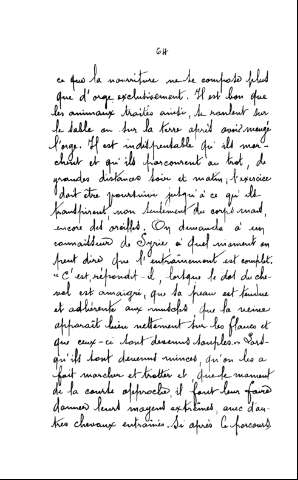 64
ce que la nourriture ne se compose plus
que d'orge exclusivement. Il est bon que
les animaux traités ainsi, se roulent sur
le sable ou sur la terre après avoir mangé
l'orge. Il est indispensable qu'ils mar-
chent et qu'ils parcourent au trot, de
grandes distances soir et matin; l'exercice
doit être poursuivi jusqu'à ce qu'ils
transpirent non seulement du corps mais,
encore des oreilles. On demanda à un
connaisseur de Syrie à quel moment on
peut dire que l'entraînement est complet.
"C'est, répondit-il, lorsque le dos du che-
val est amaigri, que sa peau est tendue
et adhérente aux muscles que la veine
apparaît bien nettement sur les flancs et
que ceux-ci sont devenus souples." Lors-
qu'ils sont devenus minces, qu'on les a
fait marcher et trotter et que le moment
de la course approche, il faut leur faire
donner leurs moyens extrêmes, avec d'au-
tres chevaux entraînés. Si après ce parcours